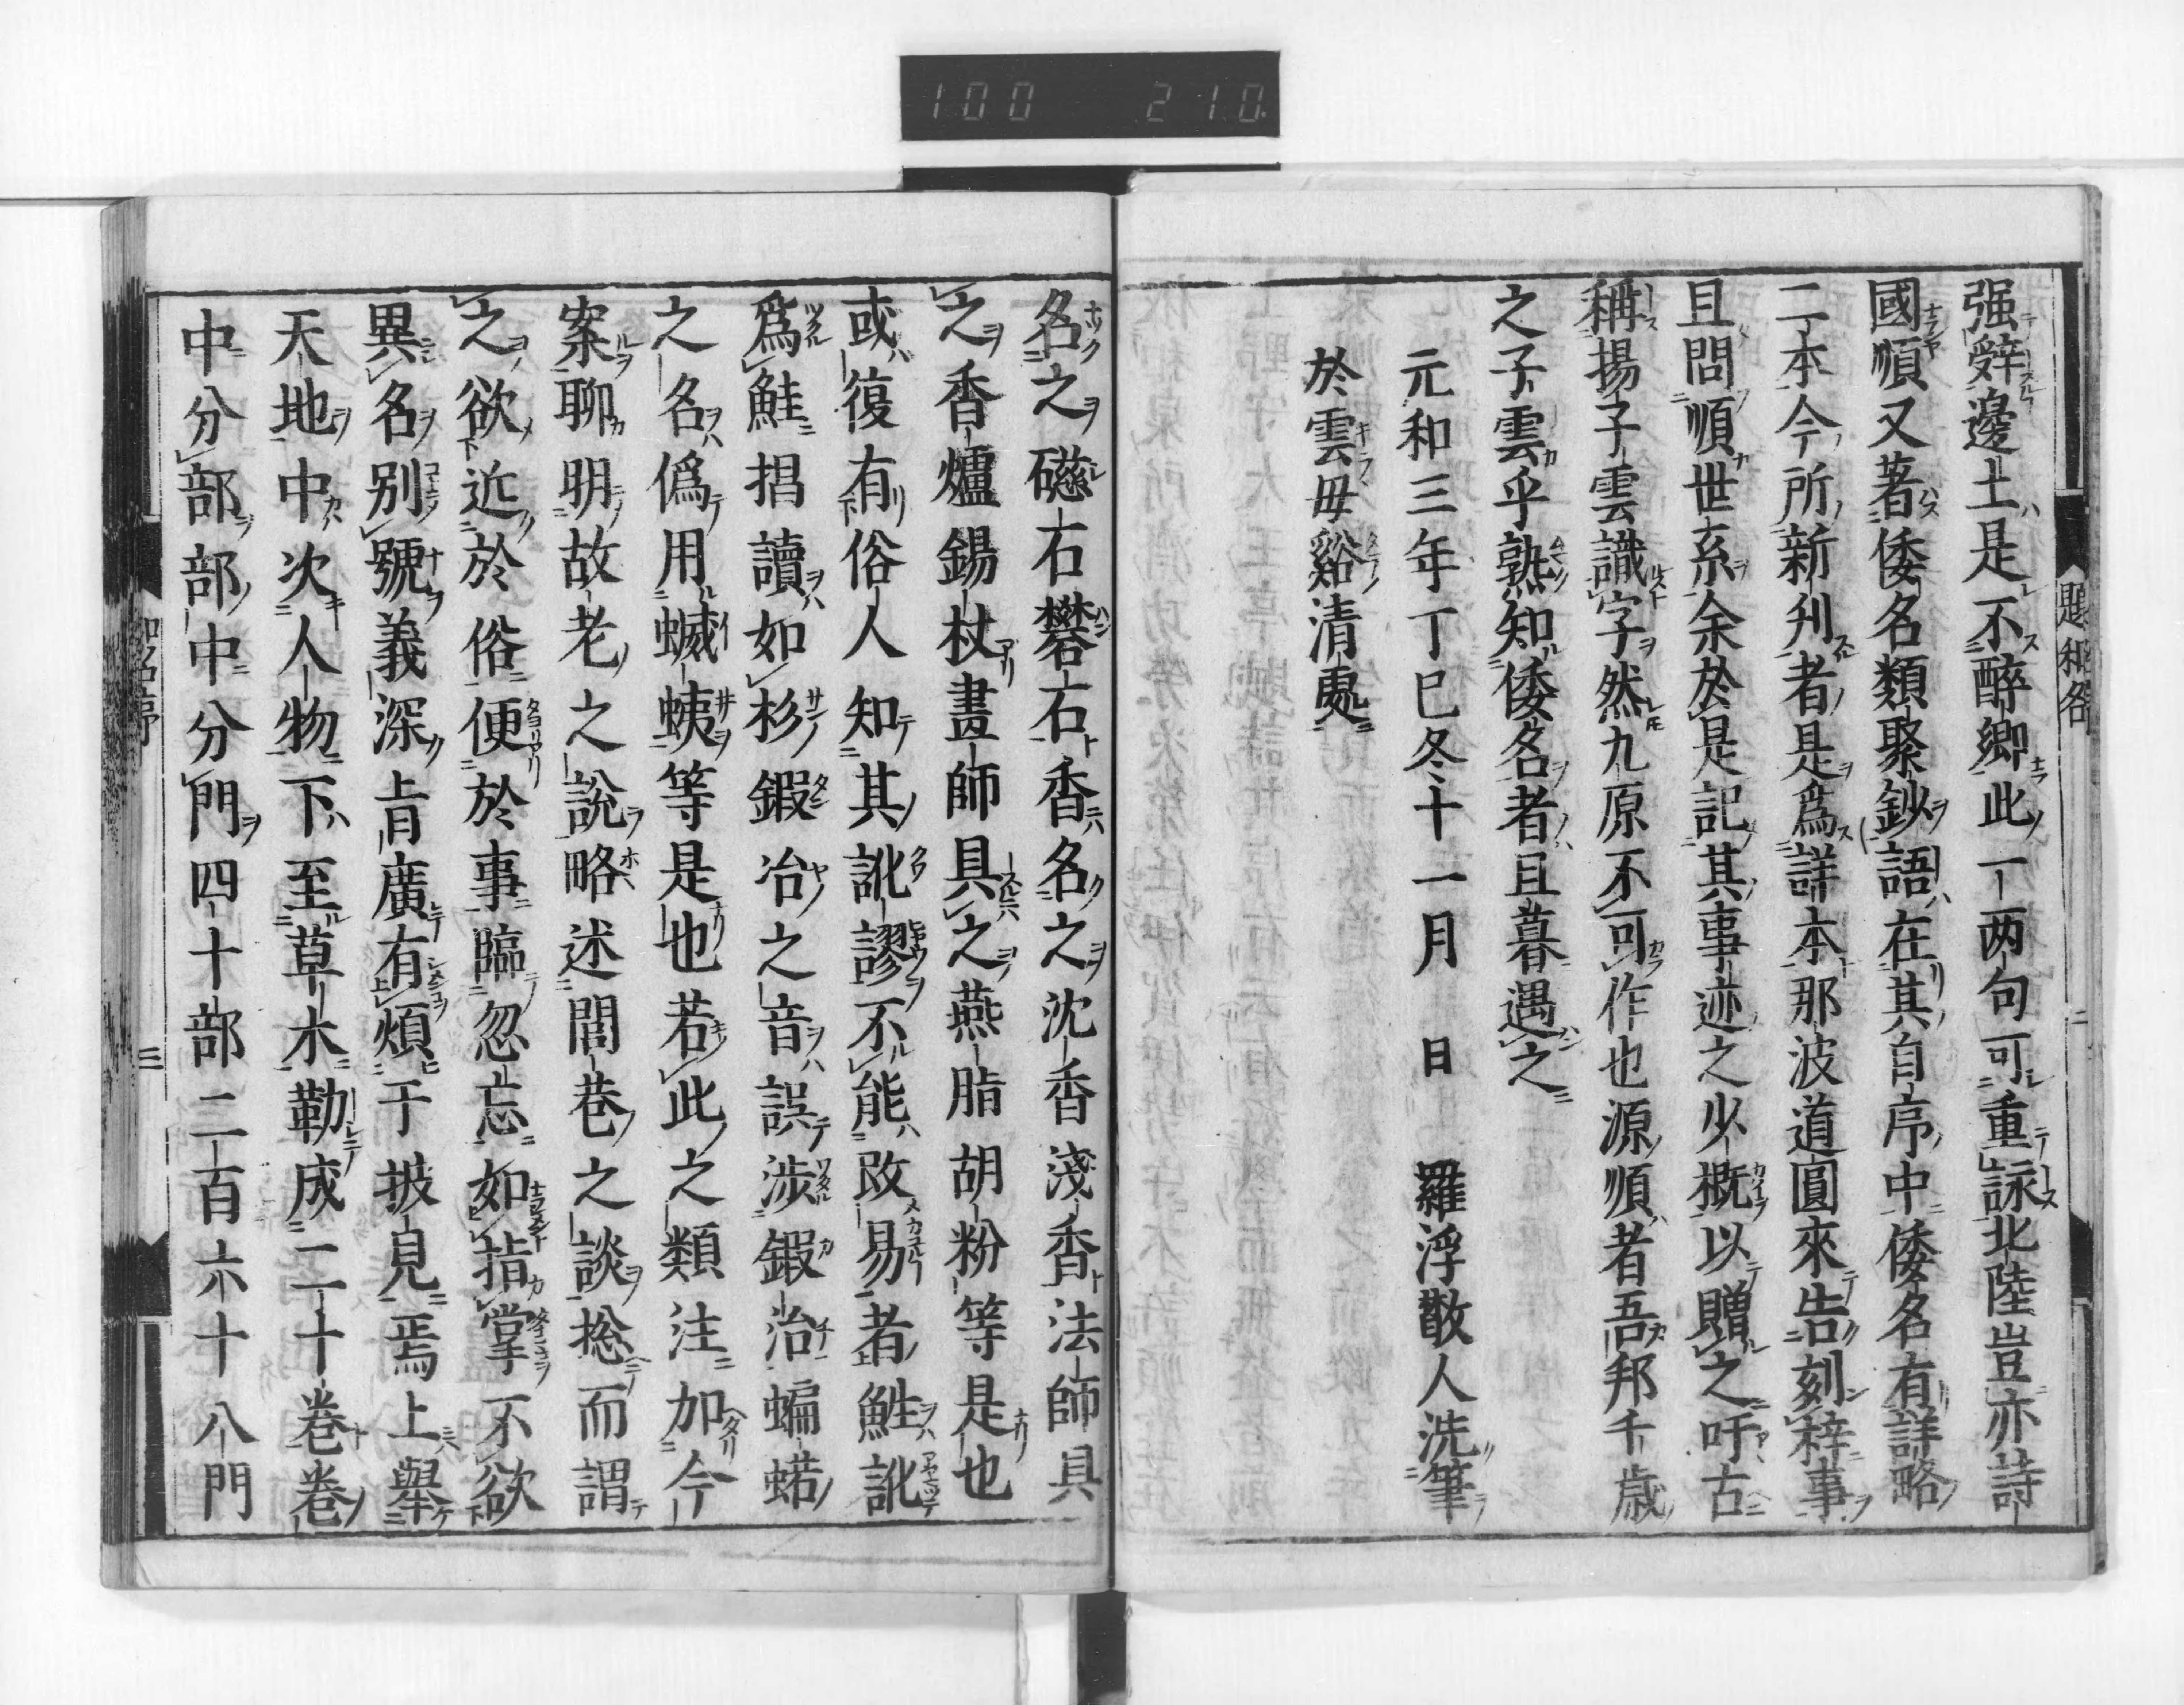 强辭邊土是不醉鄉此一两句可重詠北陸豈亦詩
國順又著倭名類聚鈔語在其自序中倭名有詳略
二本今所新刋者是爲詳本那波道圓來告刻梓事
且問順世系余於是記其事迹之少概以贈之吁古
稱揚子雲識字然九原不可作也源順者吾邦千歳
之子雲乎熟知倭名者且暮遇之
元和三年丁巳冬十一月 日 羅浮散人洗筆
於雲毋谿清處
題和名 二
名之磁石礬石香名之沈香淺香法師具
之香爐錫杖畫師具之燕脂胡粉等是也
或復有俗人知其訛謬不能改易者鮏訛
爲鮭揩讀如杉鍜冶之音誤涉鍜治蝙蝠
之名僞用蟙蛦等是也若此之類注加今
案聊明故老之說略述閭巷之談捴而謂
之欲近於俗便於事臨忽忘如指掌不欲
異名别號義深旨廣有煩于披見焉上舉
天地中次人物下至草木勒成二十卷卷
中分部部中分門四十部二百六十八門
和名序 三
100 210